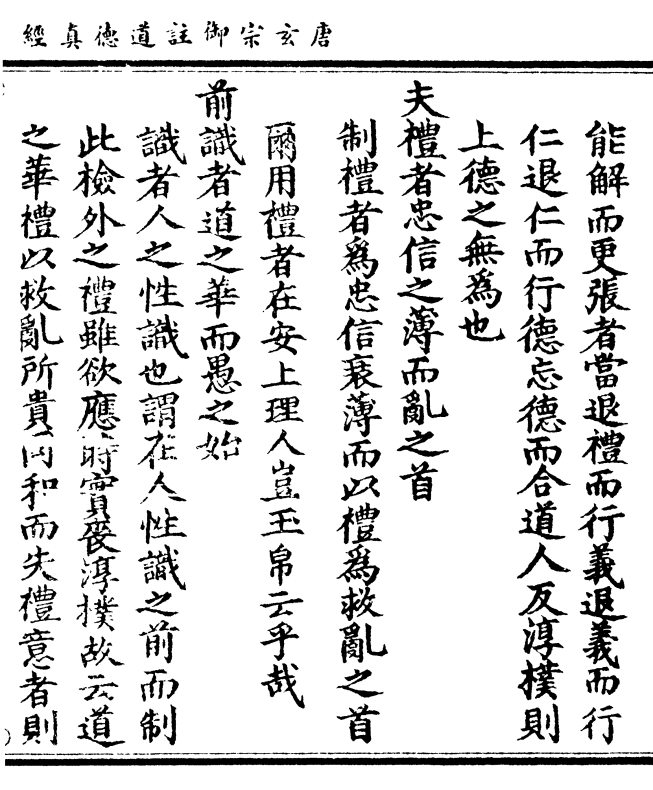 唐玄宗御註道德真經
能解而更張者當退禮而行義退義而行
仁退仁而行德忘德而合道人反淳樸則
上德之無為也
夫禮者忠信之薄而亂之首
制禮者為忠信衰薄而以禮為救亂之首
爾用禮者在安上理人豈玉帛云乎哉
前識者道之華而愚之始
識者人之性識也謂在人性識之前而制
此檢外之禮雖欲應時實喪淳樸故云道
之華禮以救亂所貴同和而失禮意者則